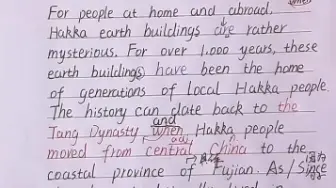 For people at home and abroad,
Hakka earth buildings are rather
mysterious. For over 1,000 years, these
earth buildings have been the home
of generations of local Hakka people.
The history can date back to the
and
Tang Dynasty when Hakka people
adj
moved from central China to the
coastal province of Fujian. As / Since
因为